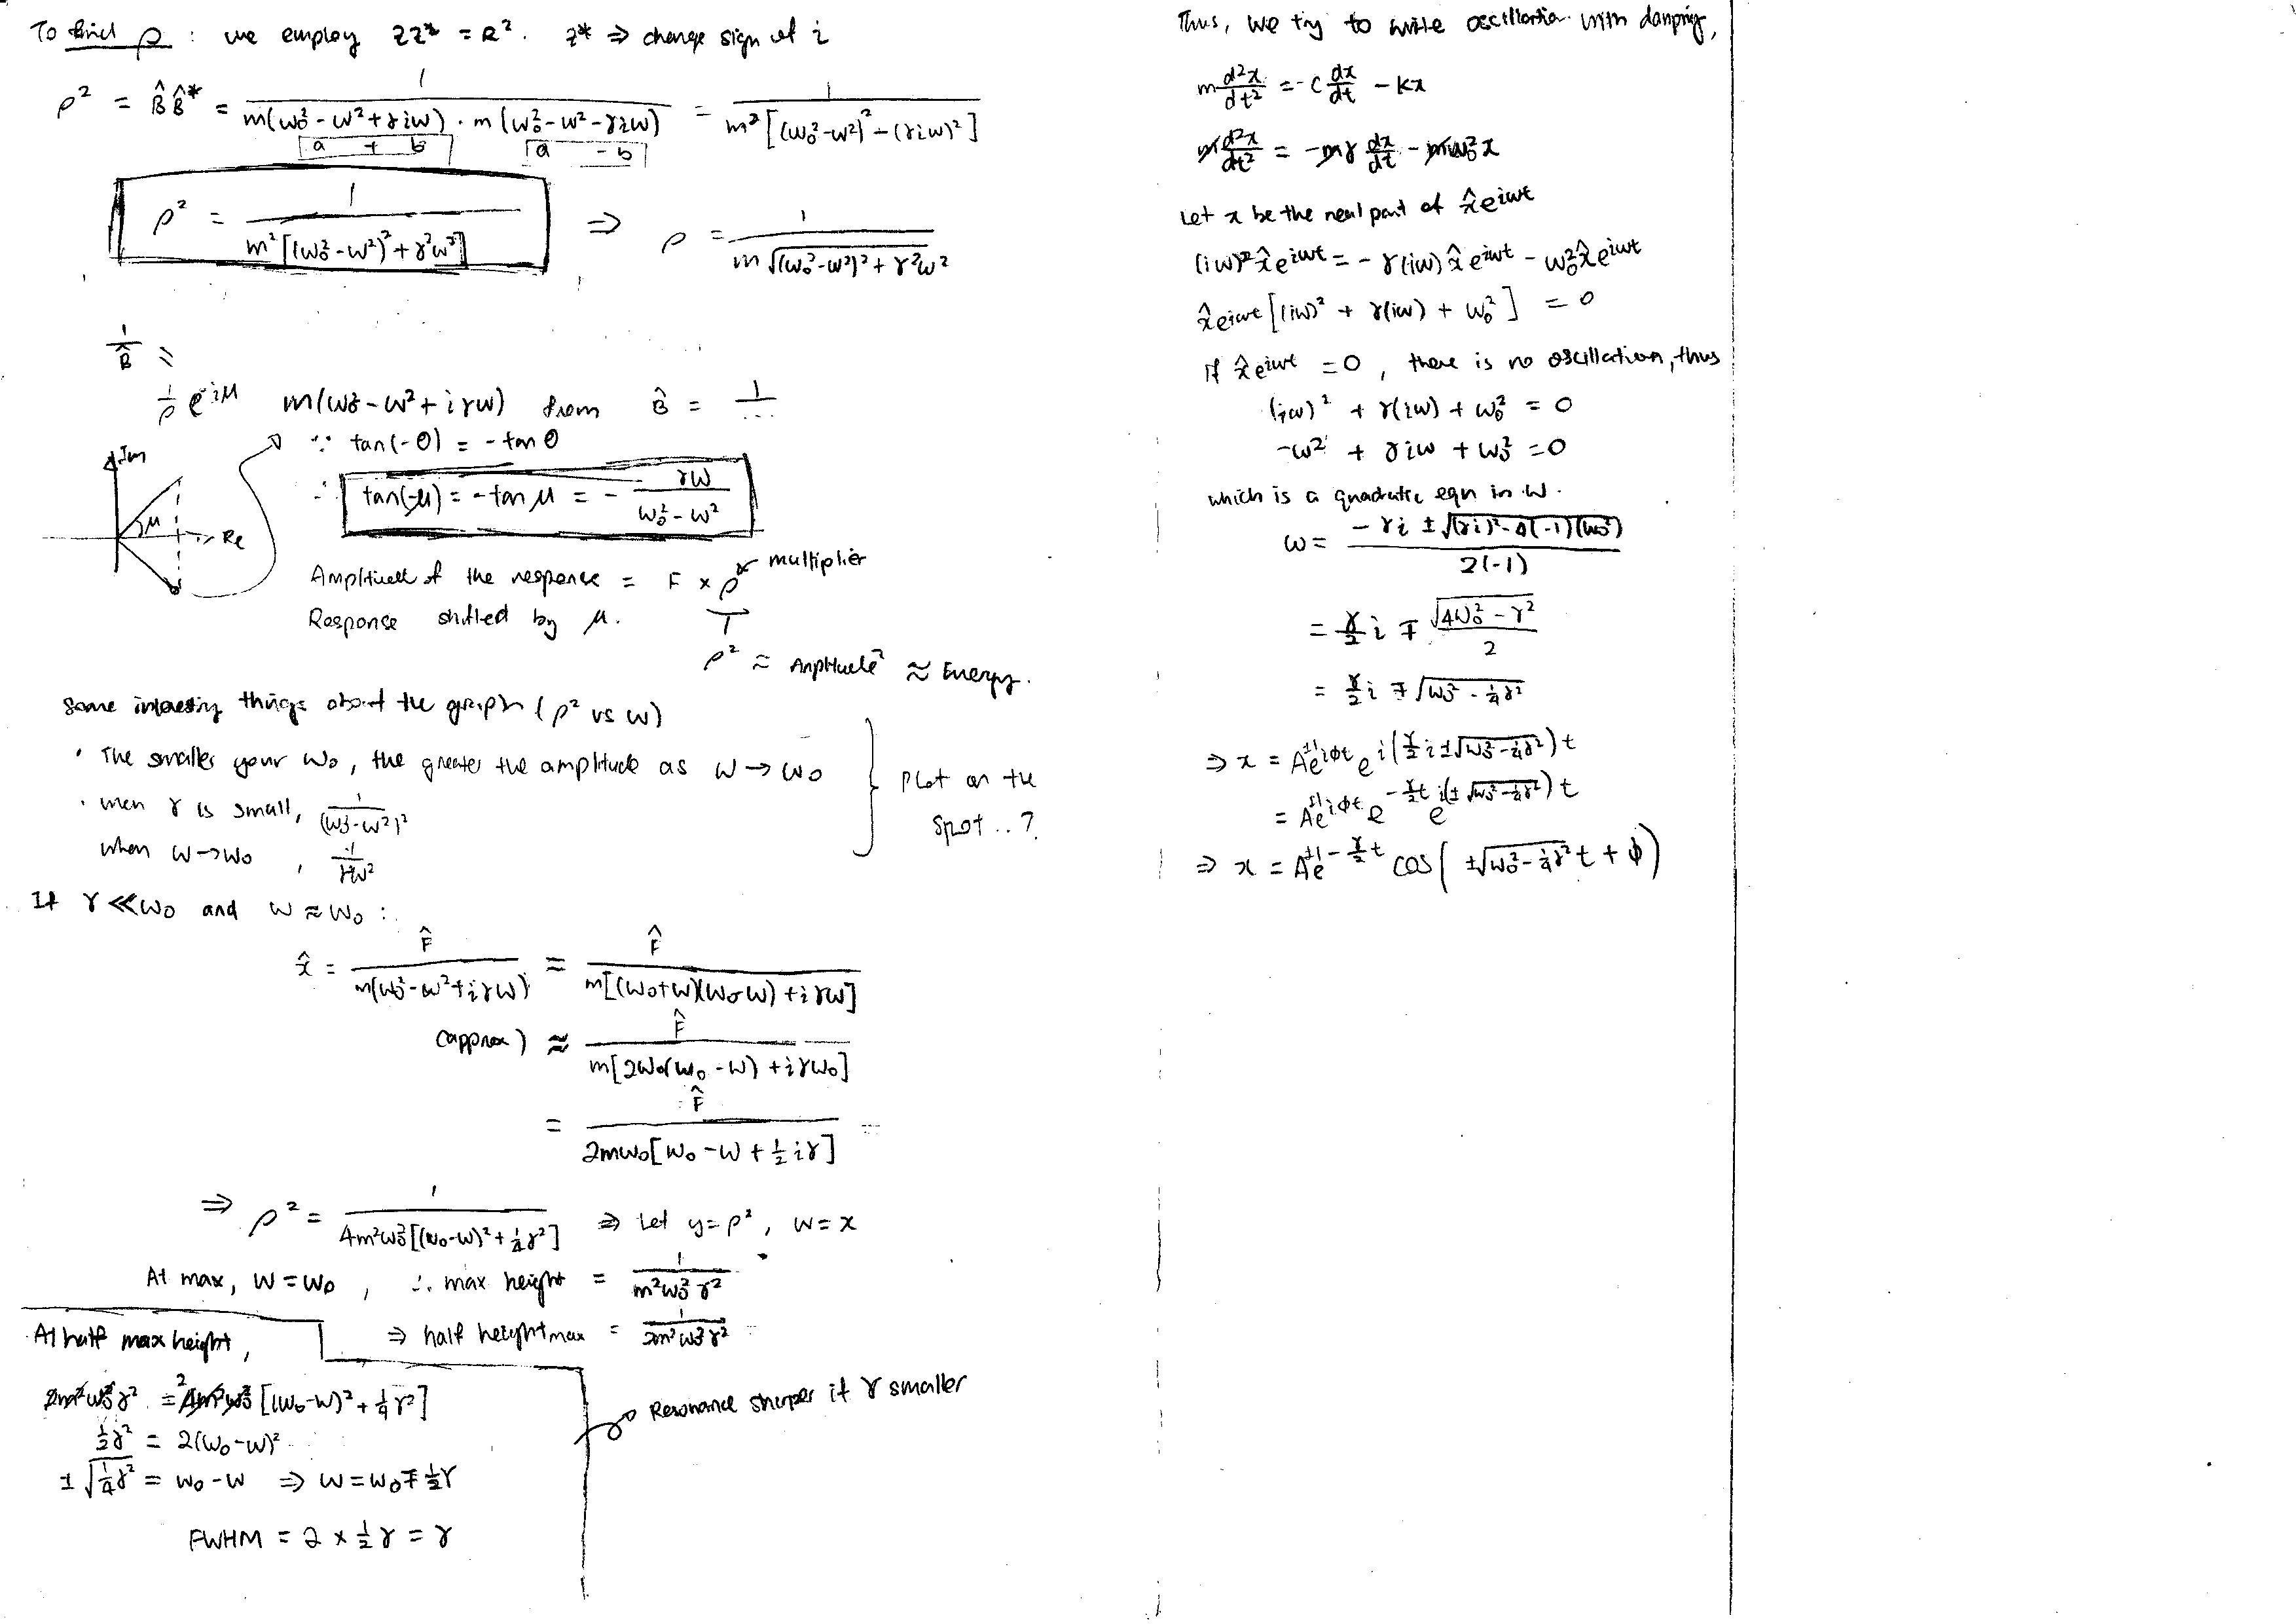 To find ρ : we employ ZZ* = R². Z* ⇒ change sign of i
ρ² = B̂B̂* = 1 / m(ω₀² - ω² + γiω) · m(ω₀² - ω² - γiω) = 1 / m²[(ω₀² - ω²)² - (γiω)²]
a + b a - b
ρ² = 1 / m²[(ω₀² - ω²)² + γ²ω²] ⇒ ρ = 1 / m√(ω₀² - ω²)² + γ²ω²
1/B̂ =
1/ρ e^-iμ m(ω₀² - ω² + iγω) from B̂ = 1/...
∵ tan(-θ) = -tan θ
Im
∴ tan(-μ) = -tan μ = - γω / ω₀² - ω²
μ
Re
Amplitude of the response = F × ρ multiplier
Response shifted by μ.
ρ² ≈ Amplitude² ≈ Energy.
Some interesting things about the graph (ρ² vs ω)
· The smaller your ω₀, the greater the amplitude as ω → ω₀
· when γ is small, 1/(ω₀² - ω²)²
when ω → ω₀ , 1/γ²ω²
Plot on the
spot..?
If γ ≪ ω₀ and ω ≈ ω₀ :
x̂ = F̂ / m(ω₀² - ω² + iγω) = F̂ / m[(ω₀+ω)(ω₀-ω) + iγω]
(approx) ≈ F̂ / m[2ω₀(ω₀ - ω) + iγω₀]
= F̂ / 2mω₀[ω₀ - ω + ½iγ]
⇒ ρ² = 1 / 4m²ω₀²[(ω₀-ω)² + ¼γ²] ⇒ Let y = ρ², ω = x
At max, ω = ω₀ , ∴ max height = 1 / m²ω₀²γ²
⇒ half height max = 1 / 2m²ω₀²γ²
At half max height,
2m²ω₀²γ² = 4m²ω₀² 2 [(ω₀-ω)² + ¼γ²]
½γ² = 2(ω₀-ω)²
± √¼γ² = ω₀ - ω ⇒ ω = ω₀ ∓ ½γ
FWHM = 2 × ½γ = γ
Resonance sharper if γ smaller
Thus, we try to write oscillation with damping,
m d²x/dt² = -c dx/dt - kx
m d²x/dt² = -mγ dx/dt - mω₀²x
Let x be the real part of x̂e^iωt
(iω)²x̂e^iωt = -γ(iω)x̂e^iωt - ω₀²x̂e^iωt
x̂e^iωt [(iω)² + γ(iω) + ω₀²] = 0
If x̂e^iωt = 0 , there is no oscillation, thus
(iω)² + γ(iω) + ω₀² = 0
-ω² + γiω + ω₀² = 0
which is a quadratic eqn in ω.
ω = -γi ± √(γi)² - 4(-1)(ω₀²) / 2(-1)
= γ/2 i ∓ √4ω₀² - γ² / 2
= γ/2 i ∓ √ω₀² - ¼γ²
⇒ x = Ae^±iφt e^i(γ/2 i ± √ω₀² - ¼γ²)t
= Ae^±iφt e^-γ/2 t e^i(±√ω₀² - ¼γ²)t
⇒ x = A^±1 e^-γ/2 t cos(±√ω₀² - ¼γ² t + φ)